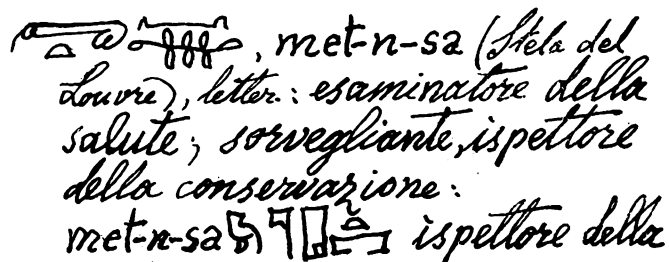 , met-n-sa (Stela del
Louvre), letter.: esaminatore della
salute; sorvegliante, ispettore
della conservazione:
met-n-sa ispettore della